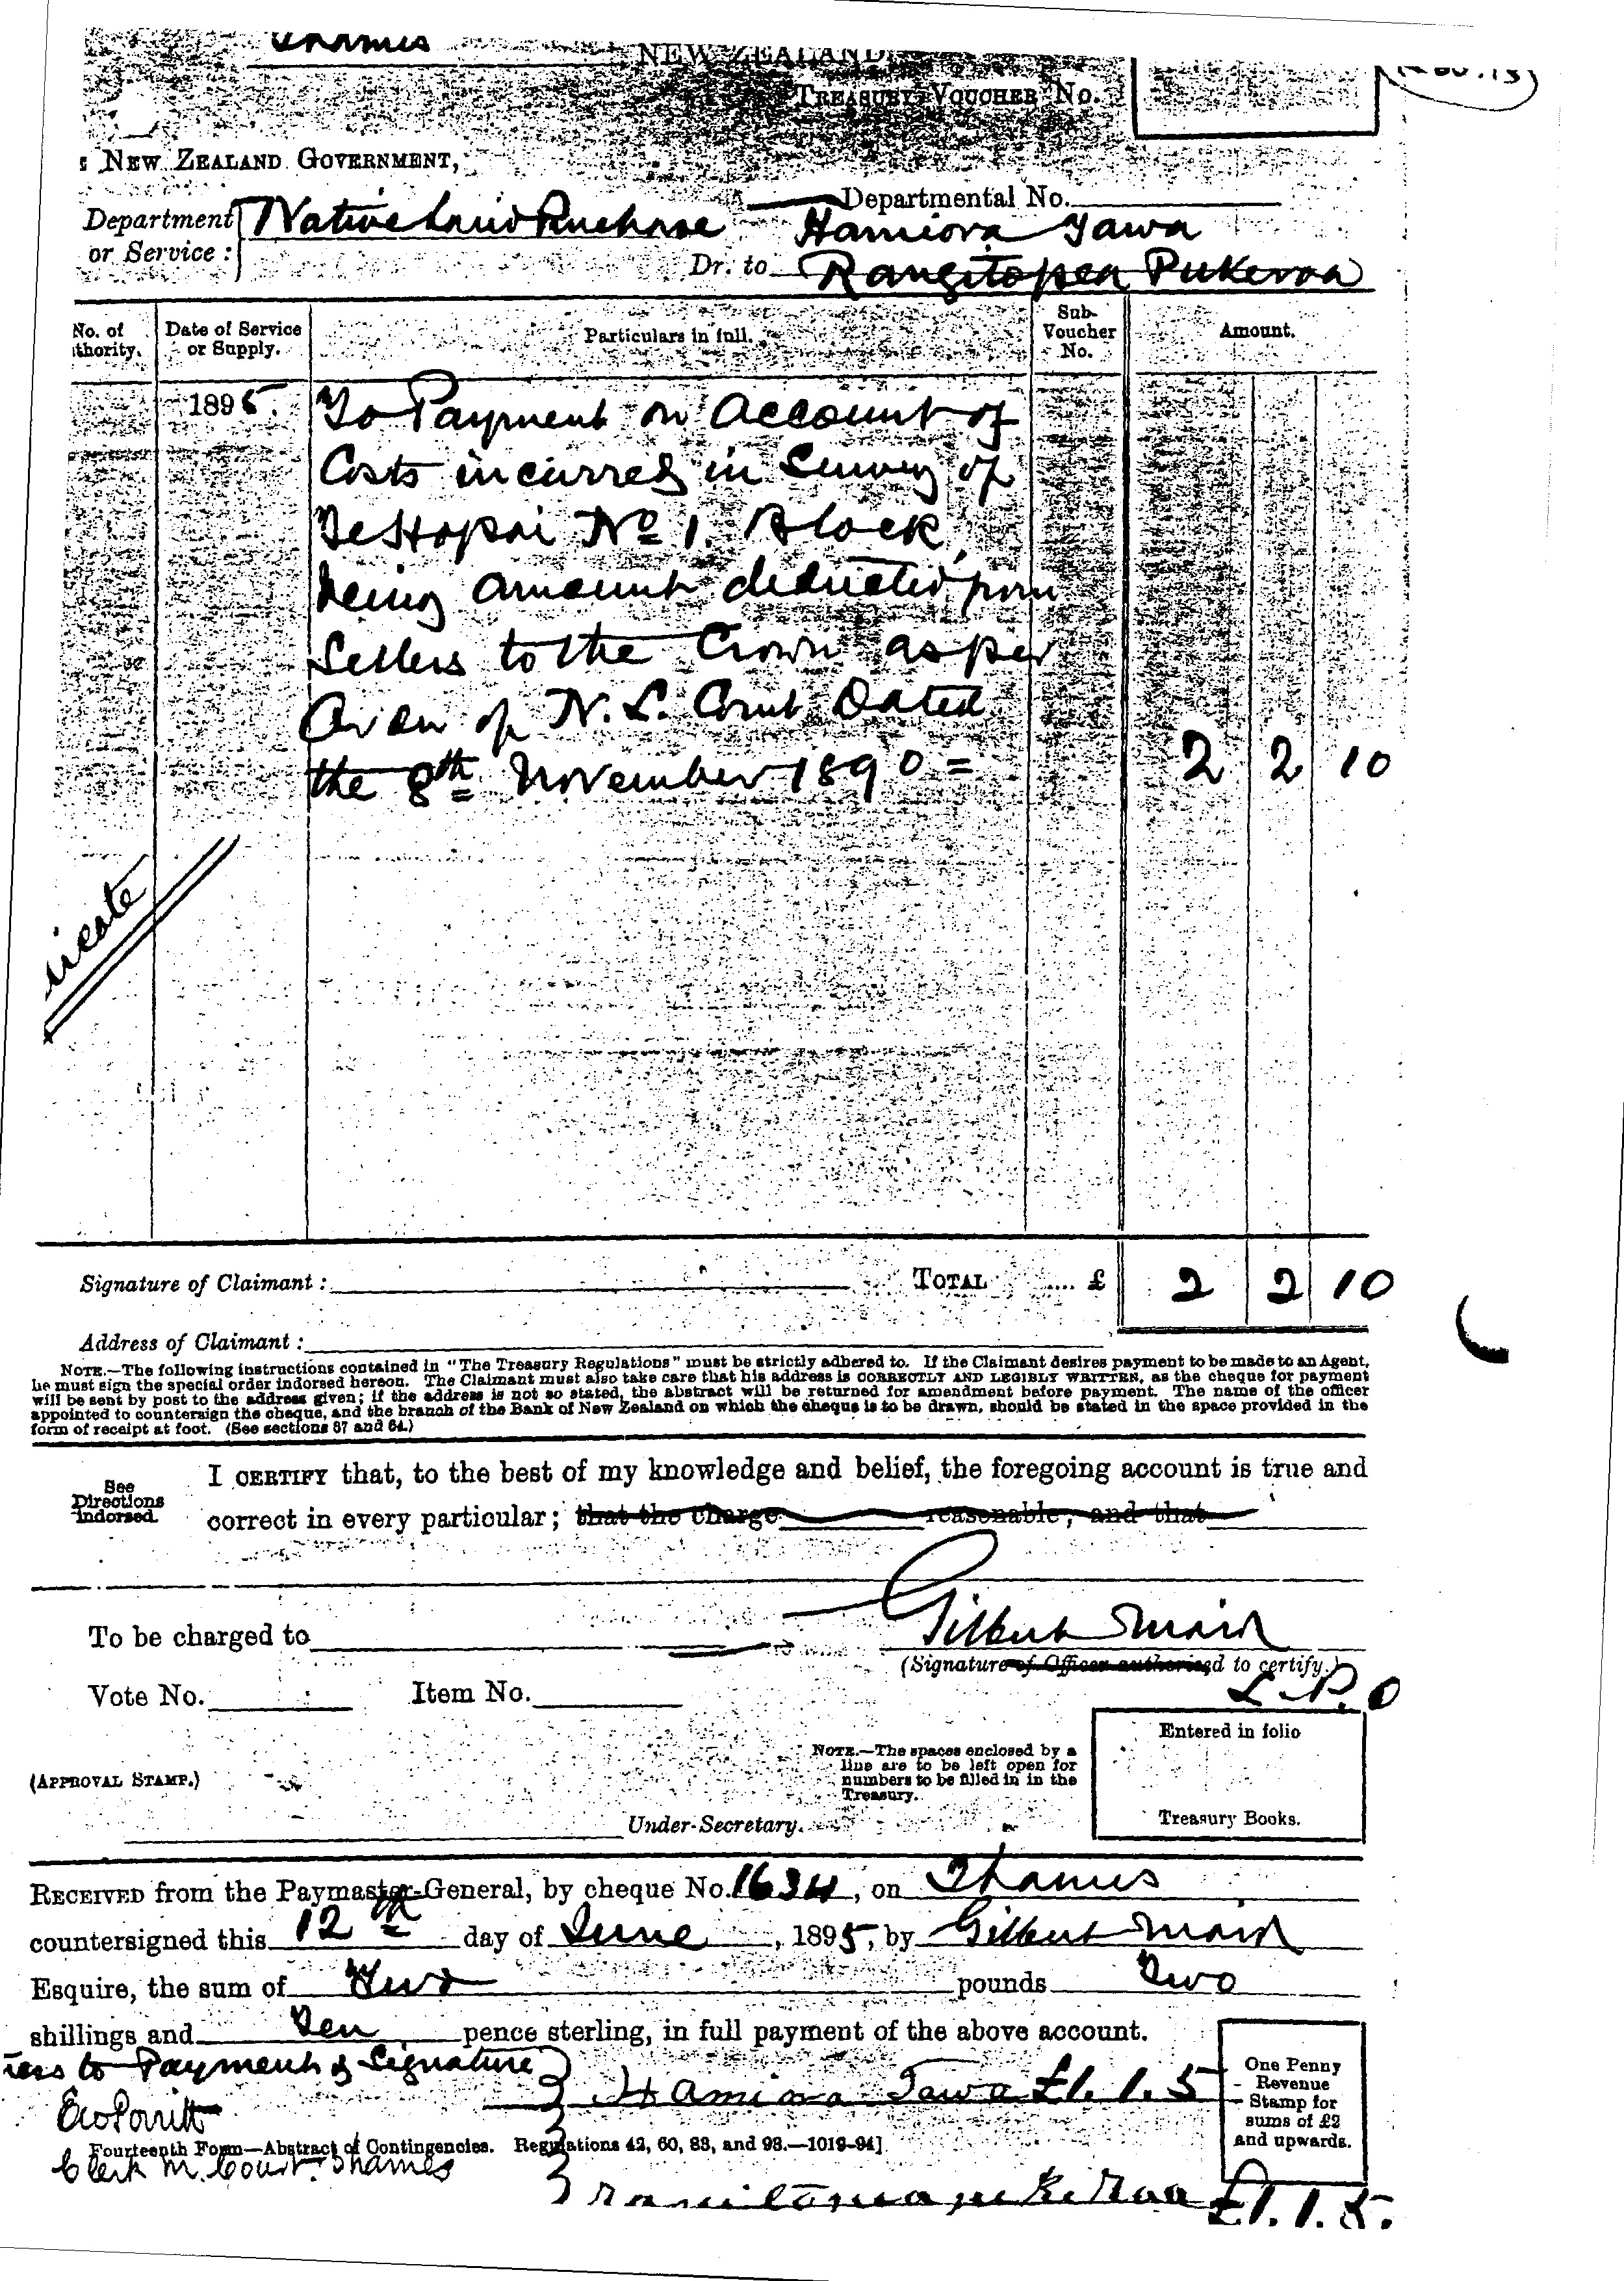 Thames
NEW ZEALAND.
TREASURY VOUCHER No.
NEW ZEALAND GOVERNMENT,
Departmental No.
Department or Service : Native Land Purchase
Hamiora Tawa
Dr. to Rangitopea Pukeroa
No. of thority. Date of Service or Supply. Particulars in full. Sub-Voucher No. Amount.
1895. To Payment on Account of
Costs incurred in Survey of
Te Hopai No 1. Block,
being amount deducted from
Sellers to the Crown as per
Order of N. L. Court Dated
the 8th November 1890 = 2 2 10
icate
Signature of Claimant : TOTAL .... £ 2 2 10
Address of Claimant :
NOTE.—The following instructions contained in "The Treasury Regulations" must be strictly adhered to. If the Claimant desires payment to be made to an Agent,
he must sign the special order indorsed hereon. The Claimant must also take care that his address is CORRECTLY AND LEGIBLY WRITTEN, as the cheque for payment
will be sent by post to the address given; if the address is not so stated, the abstract will be returned for amendment before payment. The name of the officer
appointed to countersign the cheque, and the branch of the Bank of New Zealand on which the cheque is to be drawn, should be stated in the space provided in the
form of receipt at foot. (See sections 87 and 64.)
See Directions Indorsed.
I CERTIFY that, to the best of my knowledge and belief, the foregoing account is true and
correct in every particular; that the charge reasonable; and that
Gilbert Mair
To be charged to
(Signature of Officer authorised to certify.)
L. P. O
Vote No. Item No.
Entered in folio
NOTE.—The spaces enclosed by a
line are to be left open for
numbers to be filled in in the
Treasury.
(APPROVAL STAMP.)
Under-Secretary.
Treasury Books.
RECEIVED from the Paymaster-General, by cheque No. 1634, on Thames
countersigned this 12th day of June, 1895, by Gilbert Mair
Esquire, the sum of Two pounds Two
shillings and Ten pence sterling, in full payment of the above account.
ness to Payment & Signature
Hamiora Tawa £1. 1. 5
One Penny
Revenue
Stamp for
sums of £2
and upwards.
EW Porritt
Fourteenth Form—Abstract of Contingencies. Regulations 42, 60, 83, and 98.—1019-94]
Clerk M. Court. Thames
£1. 1. 5.